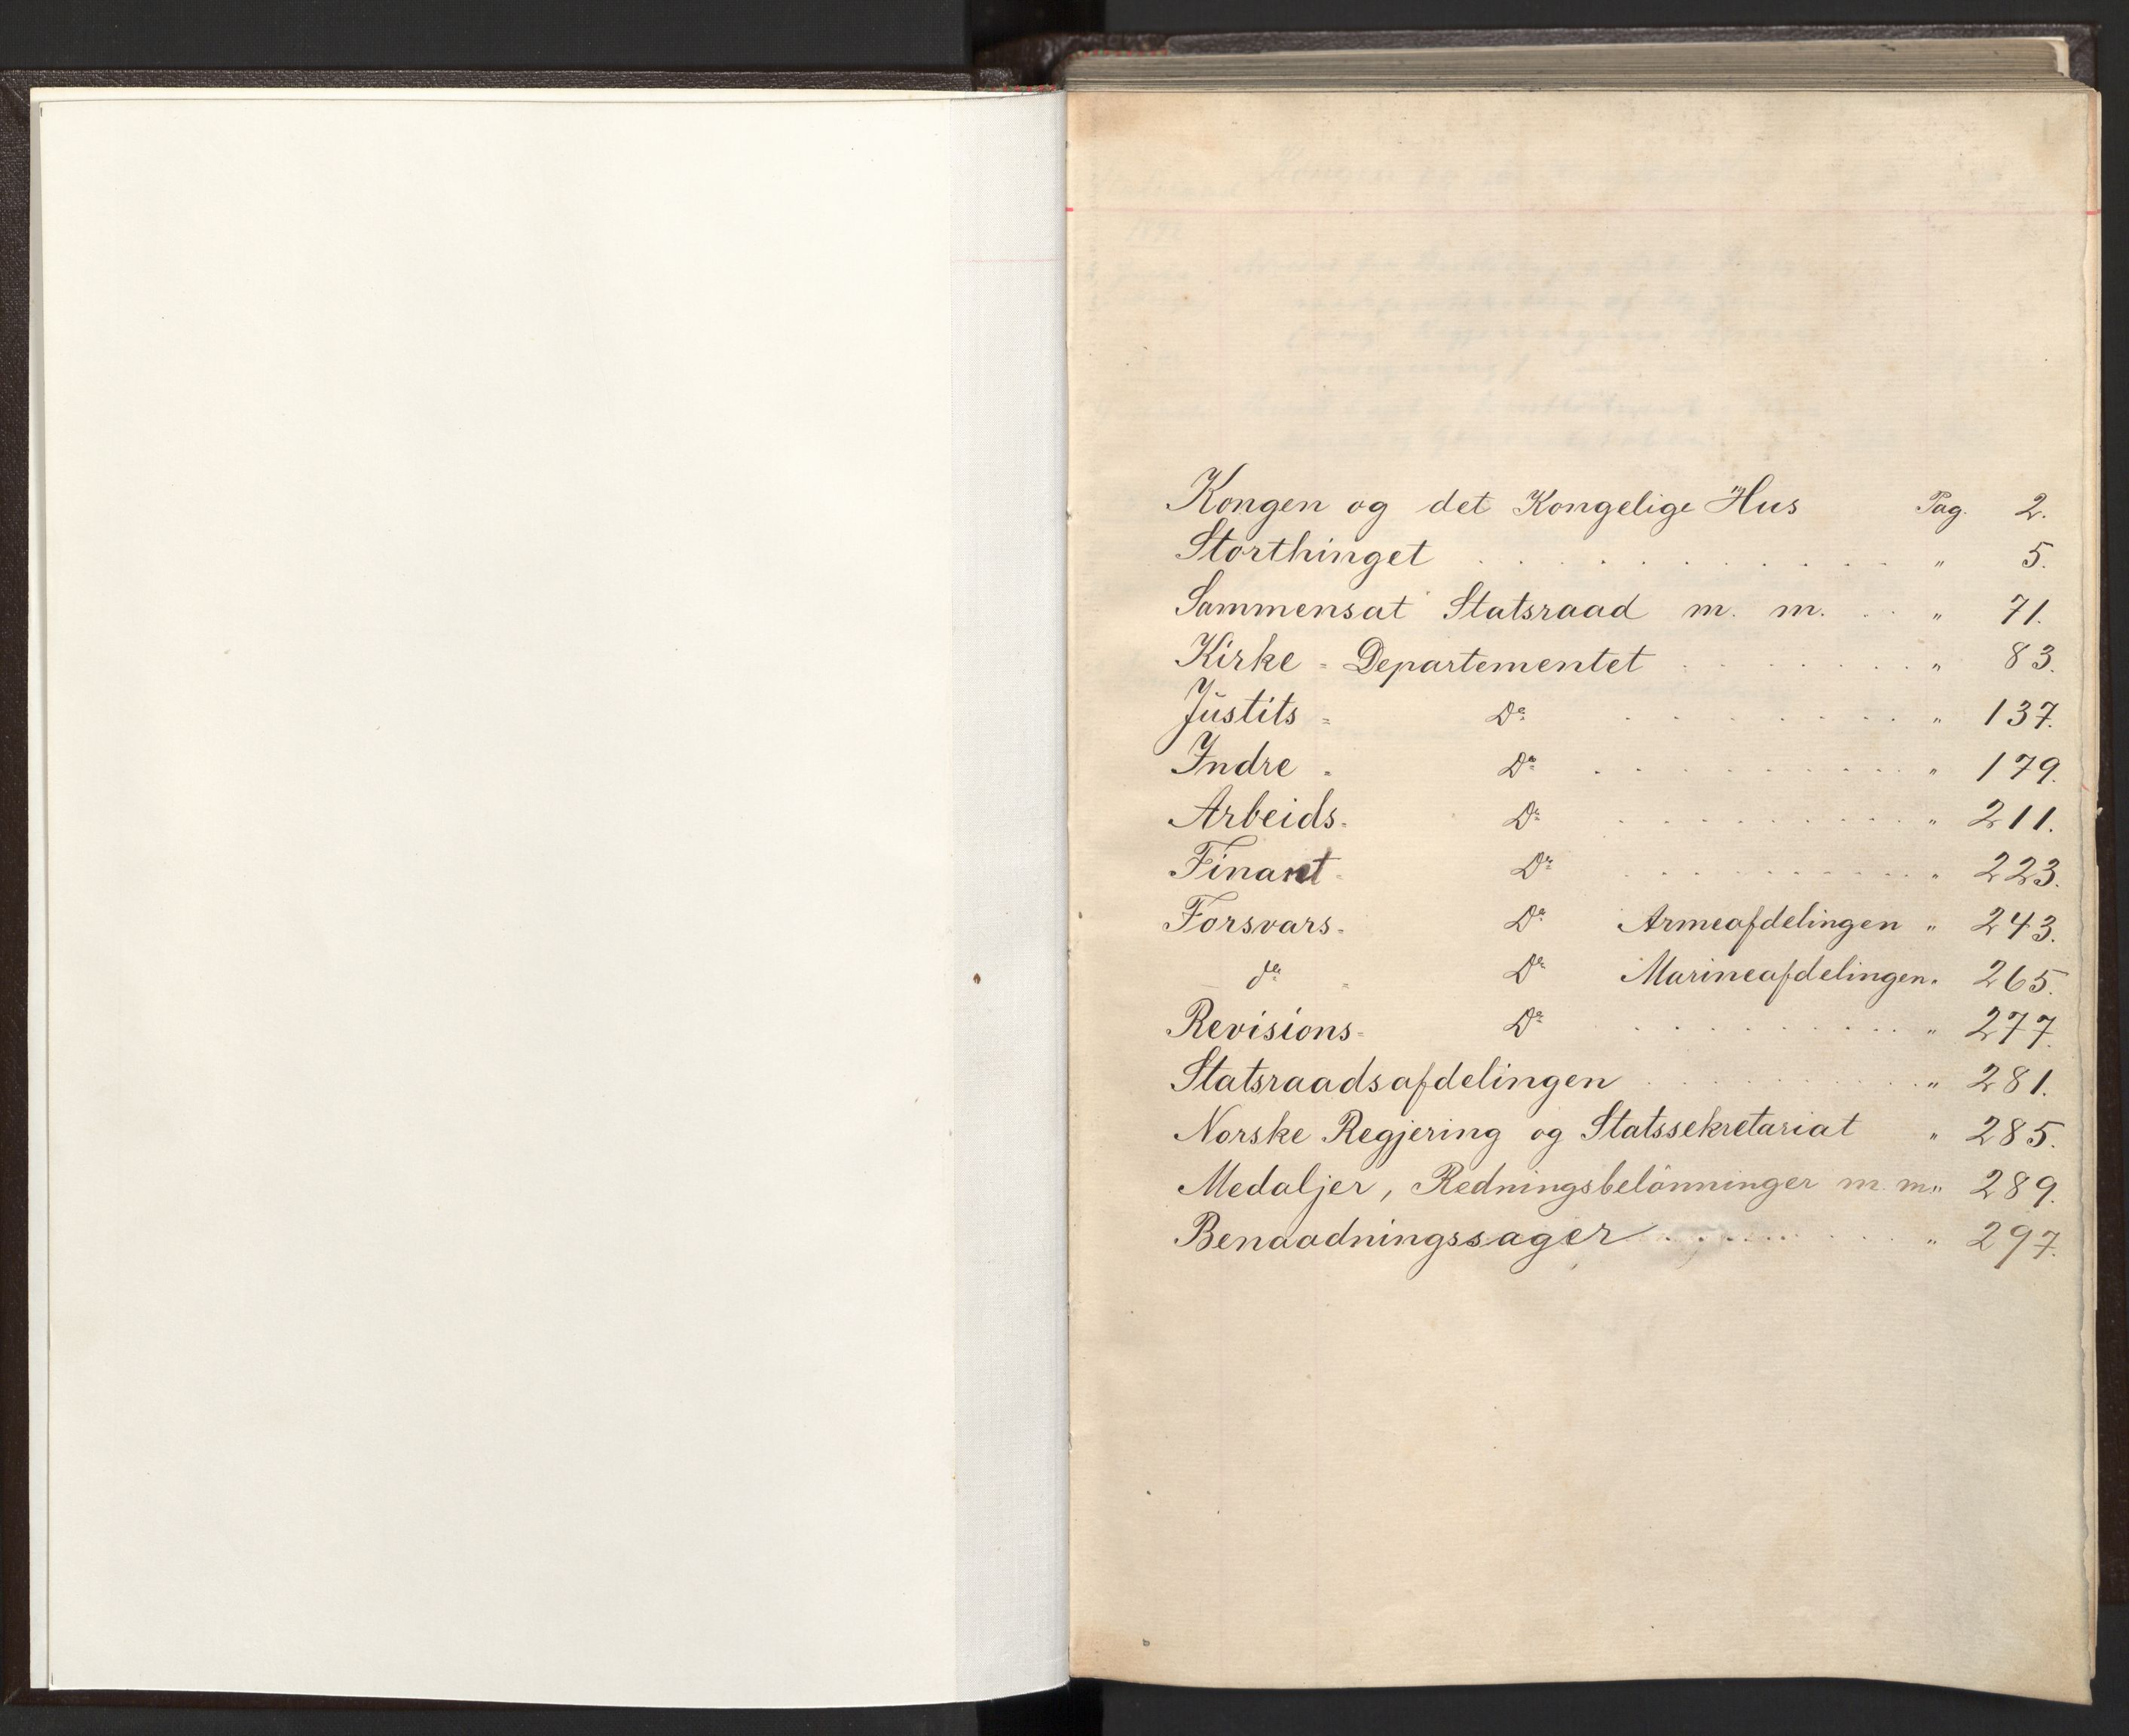 Kongen og det Kongelige Hus Pag. 2.
Storthinget . . . . . . . . . . . " 5.
Sammensat Statsraad m. m. . . " 71.
Kirke = Departementet . . . . . . . " 83.
Justits = Do . . . . . . . . " 137.
Indre = Do . . . . . . . . . " 179.
Arbeids= Do . . . . . . . . . " 211.
Finant= Do . . . . . . . . . " 223.
Forsvars= Do Armeafdelingen " 243.
do = Do Marineafdelingen " 265.
Revisions= Do . . . . . . . . . " 277.
Statsraadsafdelingen . . . . . . . . " 281.
Norske Regjering og Statssekretariat " 285.
Medaljer, Redningsbelönninger m. m. " 289.
Benaadningssager . . . . . . . . " 297.